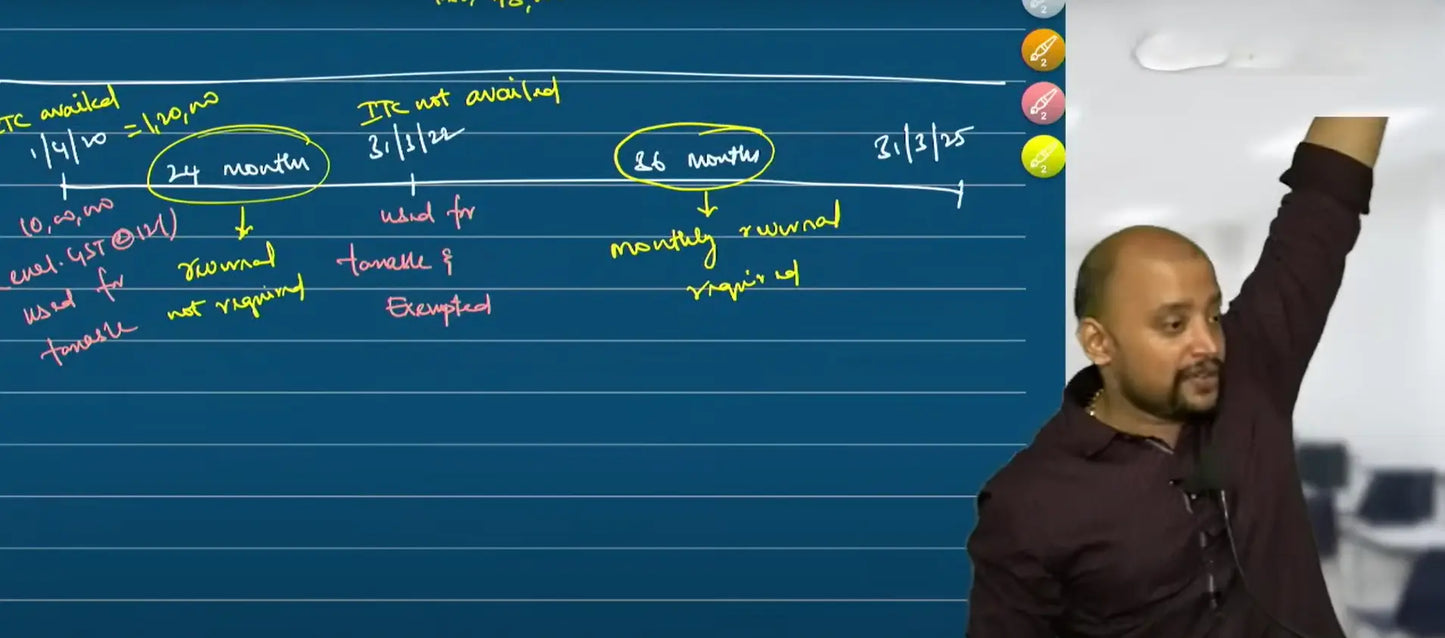 ITC availed
= 1,20,000
1/4/20
24 months
ITC not availed
31/3/22
36 months
31/3/25
10,00,000
excl. GST @ 12%)
used for
taxable
reversal
not required
used for
taxable &
Exempted
monthly reversal
required
2
2
2
2